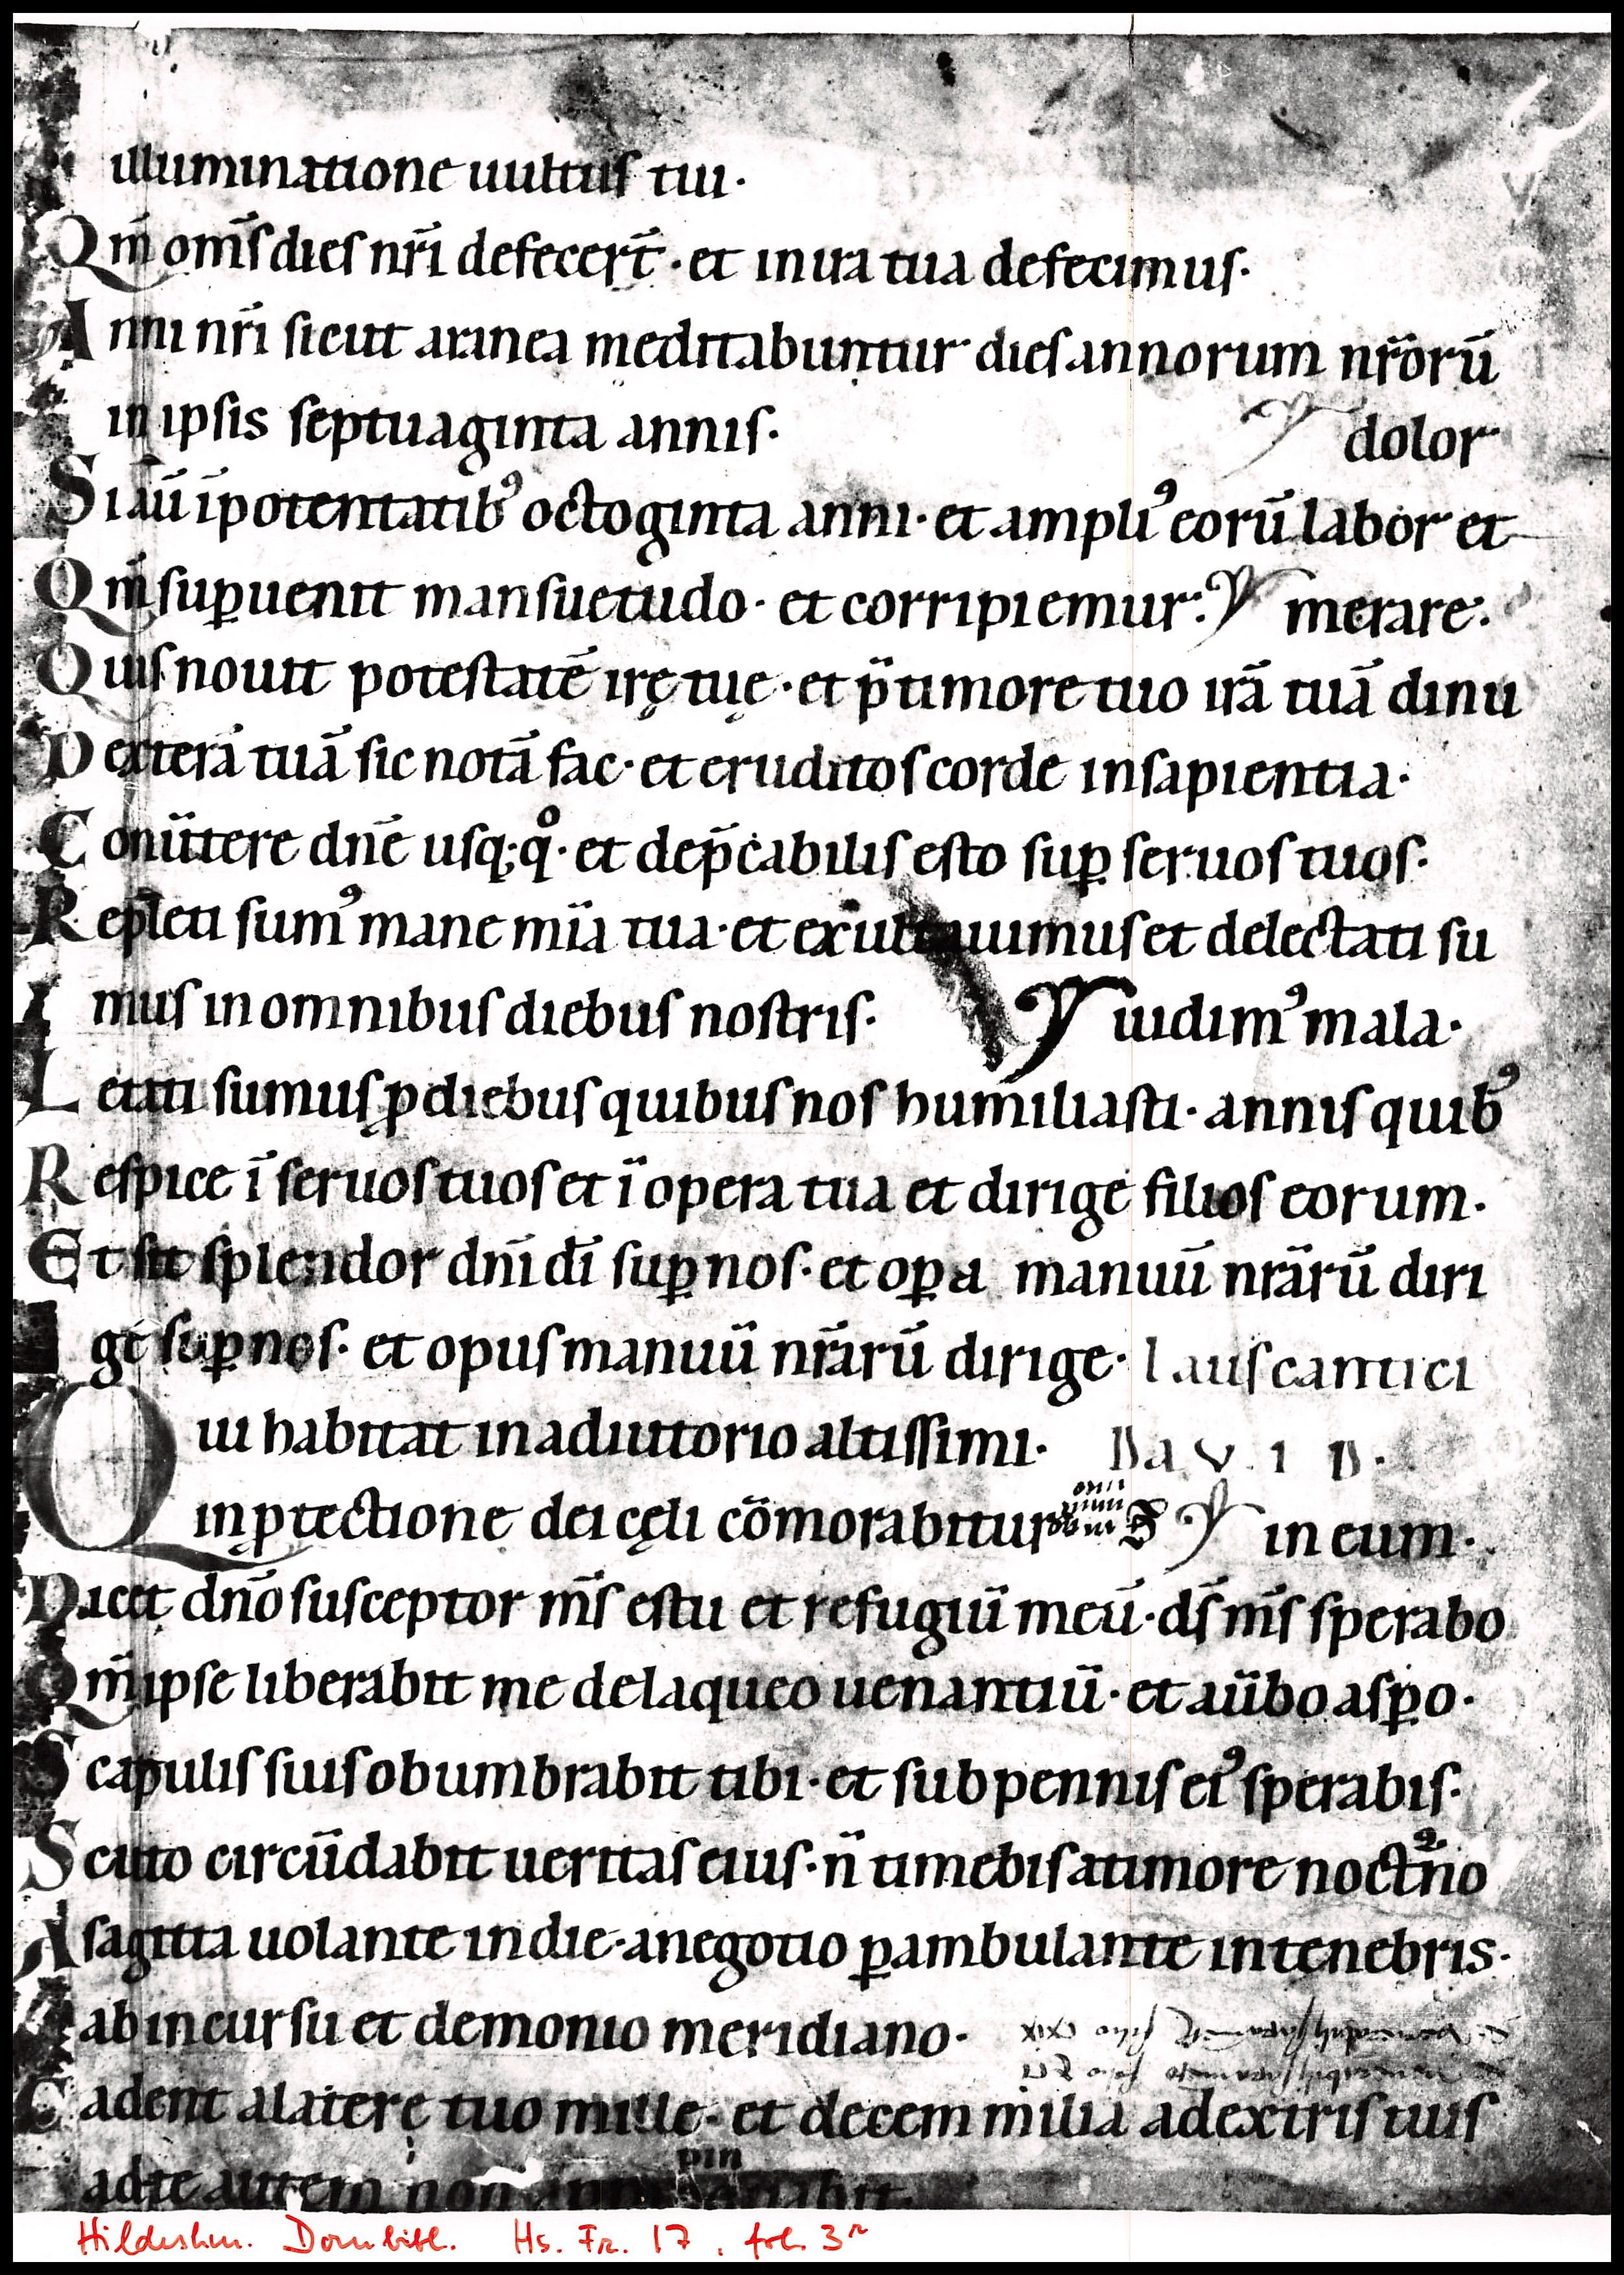 illuminatione uultus tui·
Qm̄ om̄s dies nr̄i defecer̄t· et in ira tua defecimus·
Anni nr̄i sicut aranea meditabuntur dies annorum nr̄orū
in ipsis septuaginta annis· dolor
Si aū ī potentatibꝰ octoginta anni· et ampliꝰ eorū labor et
Qm̄ suꝑuenit mansuetudo· et corripiemur· merare·
Quis nouit potestatē irę tuę· et p̄ timore tuo irā tuā dinu
Dexterā tuā sic notā fac· et eruditos corde in sapientia·
Conūtere dn̄e usq;q̊· et dep̄cabilis esto suꝑ seruos tuos·
Repleti sumꝰ mane mīa tua· et exultauimus et delectati su
mus in omnibus diebus nostris· uidimꝰ mala·
Letati sumus ꝓ diebus quibus nos humiliasti· annis quibꝰ
Respice ī seruos tuos et ī opera tua et dirige filios eorum·
Et sit splendor dn̄i dī suꝑ nos· et oꝑa manuū nr̄arū diri
ge suꝑ nos· et opus manuū nr̄arū dirige· laus cantici
Qui habitat in adiutorio altissimi· Dauid·
in ꝓtectione dei cęli cōmorabitur in eum·
Dicet dn̄o susceptor m̄s es tu et refugiū meū· ds̄ m̄s sperabo
Qm̄ ipse liberabit me de laqueo uenantiū· et aūbo asꝑo·
Scapulis suis obumbrabit tibi· et sub pennis eiꝰ sperabis·
Scuto circūdabit ueritas eius· n̄ timebis a timore noct̉no
A sagitta uolante in die· a negotio ꝑambulante in tenebris·
ab incursu et demonio meridiano·
Cadent a latere tuo mille· et decem milia a dextris tuis
ad te autem non
pin
Hildeshm. Dombibl. Hs. Fr. 17, fol. 3r